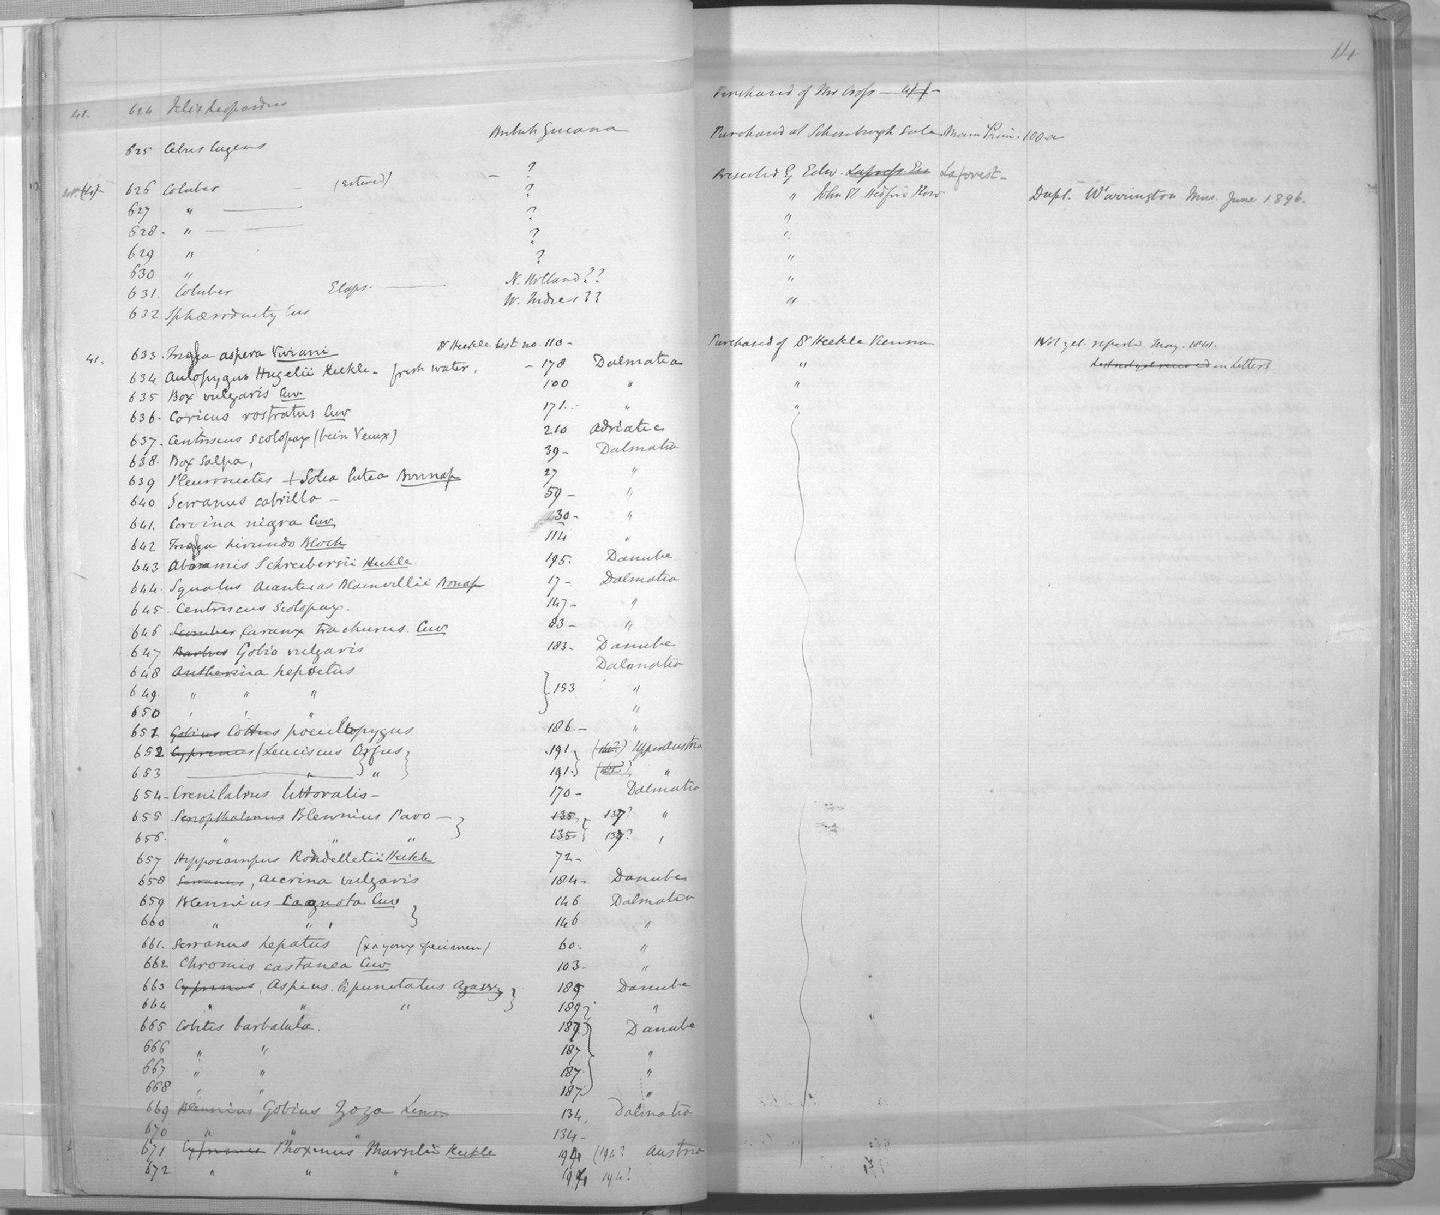 41. 624 Felis Leopardus Purchased of Mr Cross
British Guiana
625 Cebus Purchased at Schomburgh Sale
626 Coluber — (entered) — ? Presented by Edw. Laforest
627 " — ? " John St Bedford Row Dupl. Warrington Mus. June 1896.
628 - " — ? "
629 " ? "
630 " ? "
631. Coluber Elaps. — N. Holland ?? "
632 W. Indies ?? "
41. 633. aspera Viviani Dr Heckle list no 110 - Purchased of Dr Heckle Vienna Not yet reported May. 1841.
634 Aulopygus Hugelii Heckle - fresh water. - 178 Dalmatia "
in letters
635 Box vulgaris Cuv 100 " "
636. Coricus rostratus Cuv 171. - " "
637. Centriscus scolopax 210 Adriatic
638. Box Salpa, 39 - Dalmatia
639 Pleuronectes + Solea lutea Bonnap 27 "
640 Serranus cabrilla - 59 - "
641. Corvina nigra Cuv 30 - "
642 hirundo Bloch 114 "
643 Abramis Schreibersii Heckle 195. Danube
644. Squalus Acanthias Blainvillii Bonap 17 - Dalmatia
645. Centriscus Scolopax. 147 - "
646 Scomber, Caranx trachurus. Cuv 83 - "
647 Barbus Gobio vulgaris 183 - Danube
648 Antherina hepsetus Dalmatia
649. " " " } 153 "
650 " " " "
651 Gobius Cottus poecilopygus 186 - "
652 Cyprinus (Leuciscus Orfus } 191 } Upper Austria
653 — " " } 191 } "
654 - Crenilabrus littoralis - 170 - Dalmatia
655 Periopthalmus Blennius Pavo - } 135, 137? "
656. " " " 135 137? "
657 Hippocampus Rondelletii Heckle 72 -
658 Serranus, Acerina vulgaris 184 - Danube
659 Blennius Cuv } 146 Dalmatia
660 " " " 146 "
661. Serranus hepatus (x a young specimen) 60. "
662 Chromis castanea Cuv 103 - "
663 Cyprinus, Aspius. bipunctatus Agassiz } 189 Danube
664 " " " 189 "
665 Cobitis barbatula. 187 } Danube
666 " " 187 "
667 " " 187 "
668 " " 187 "
669 Blennius Gobius Zoza 134 Dalmatia
670 " " " 134 -
671 Cyprinus Phoxinus Marsilii Heckle 194 (194? Austria
672 " " " 194 194?